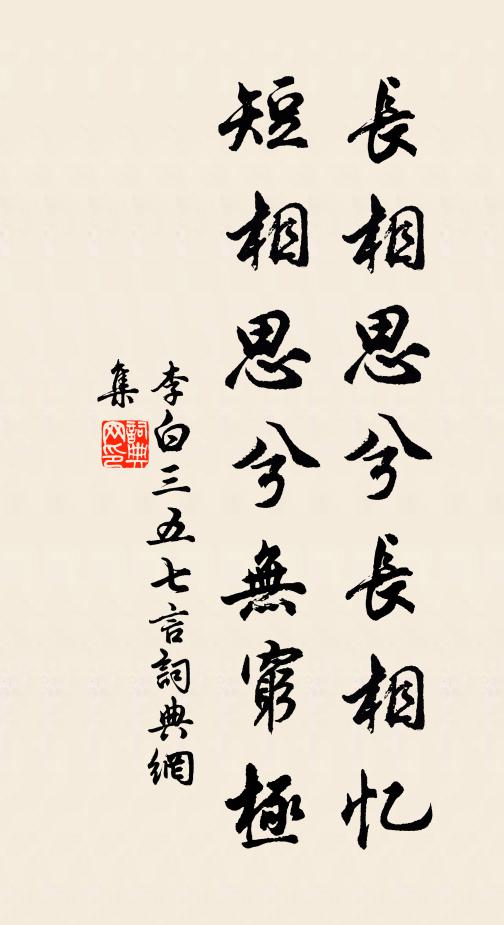 長相思兮長相忆
短相思兮無窮極
李白三五七言詞典網
集
詞典
网印